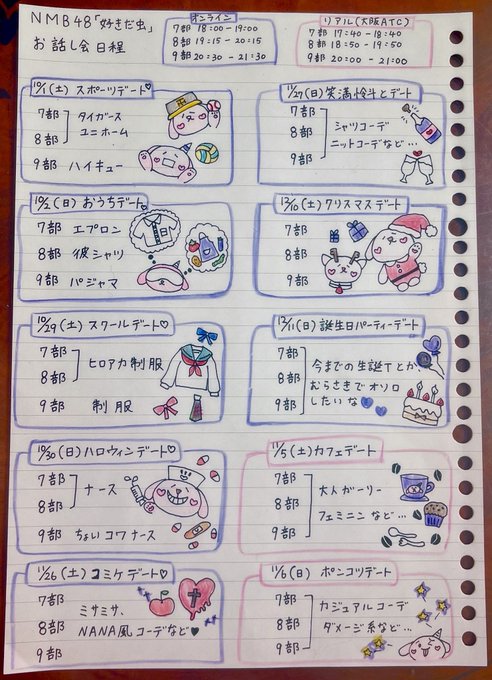 NMB48「好きだ虫」
お話し会 日程
オンライン
7部 18:00 - 19:00
8部 19:15 - 20:15
9部 20:30 - 21:30
リアル(大阪ATC)
7部 17:40 - 18:40
8部 18:50 - 19:50
9部 20:00 - 21:00
10/1(土)スポーツデート♡
7部
8部
タイガース
ユニホーム
9部 ハイキュー
10/2(日)おうちデート♡
7部 エプロン
8部 彼シャツ
9部 パジャマ
10/29(土)スクールデート♡
7部
8部
ヒロアカ制服
9部 制服
10/30(日)ハロウィンデート♡
7部
8部
ナース
9部 ちょいコワナース
11/26(土)コミケデート♡
7部
8部
9部
ミサミサ、
NANA風コーデなど♥
11/27(日)笑満怜斗とデート
7部
8部
9部
シャツコーデ
ニットコーデなど…
12/10(土)クリスマスデート
7部
8部
9部
12/11(日)誕生日パーティーデート
7部
8部
9部
今までの生誕Tとか
むらさきでオソロ
したいな💙💙
11/5(土)カフェデート
7部
8部
9部
大人ガーリー
フェミニンなど…
11/6(日)ポンコツデート
7部
8部
9部
カジュアルコーデ
ダメージ系など…